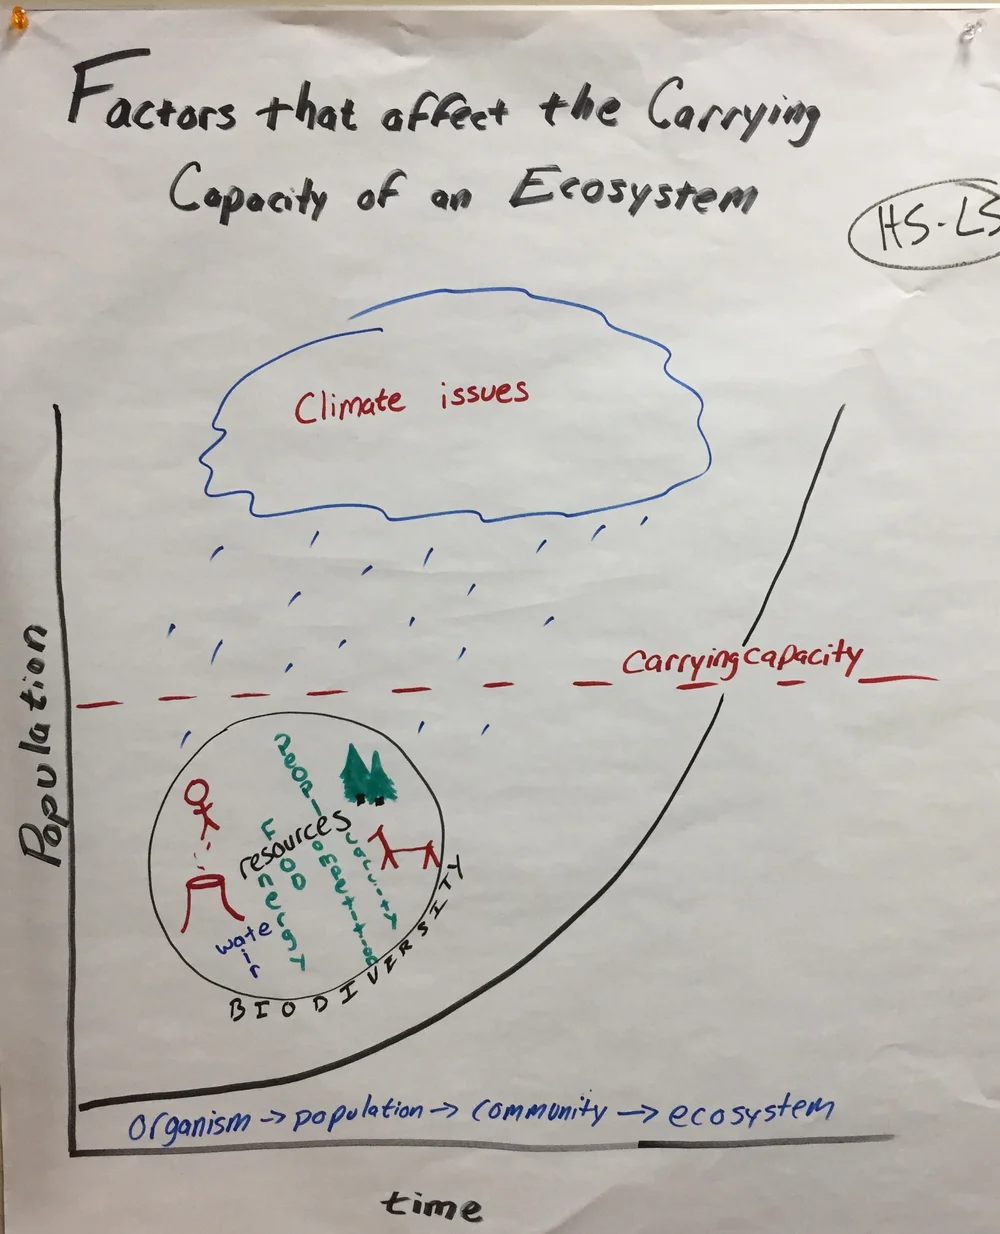 Factors that affect the Carrying
Capacity of an Ecosystem
HS-LS
Climate issues
Carrying capacity
Population
People
resources
FOOD
energy
water
air
competition
BIODIVERSITY
organism → population → community → ecosystem
time